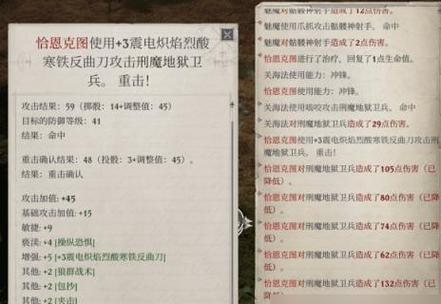 恰恩克图使用+3震电炽焰烈酸
寒铁反曲刀攻击刑魔地狱卫
兵。 重击!
攻击结果: 59 (掷骰: 14+调整值: 45)
目标的防御等级: 41
结果: 命中
重击确认结果: 48 (投骰: 3+调整值: 45)。
结果: 重击确认
攻击加值: +45
基础攻击加值: +15
敏捷: +9
亵渎: +4 [操纵恐惧]
增强: +5 [+3震电炽焰烈酸寒铁反曲刀]
其他: +2 [狼群战术]
其他: +2 [包抄]
其他: +2 [夹击]
魅魔对骷髅神射手造成了12点伤害。
魅魔使用爪抓攻击骷髅神射手。 命中
魅魔对骷髅神射手造成了2点伤害。
恰恩克图进行了治疗, 回复了1点生命值。
关海法使用能力: 冲锋。
恰恩克图使用能力: 冲锋。
关海法使用啮咬攻击刑魔地狱卫兵。 命中
关海法对刑魔地狱卫兵造成了29点伤害。
恰恩克图使用+3震电炽焰烈酸寒铁反曲刀攻击刑
魔地狱卫兵。 重击!
恰恩克图对刑魔地狱卫兵造成了105点伤害 (已
降低)。
恰恩克图对刑魔地狱卫兵造成了80点伤害 (已降
低)。
恰恩克图对刑魔地狱卫兵造成了74点伤害 (已降
低)。
恰恩克图对刑魔地狱卫兵造成了62点伤害 (已降
低)。
恰恩克图对刑魔地狱卫兵造成了132点伤害 (已
降低)。